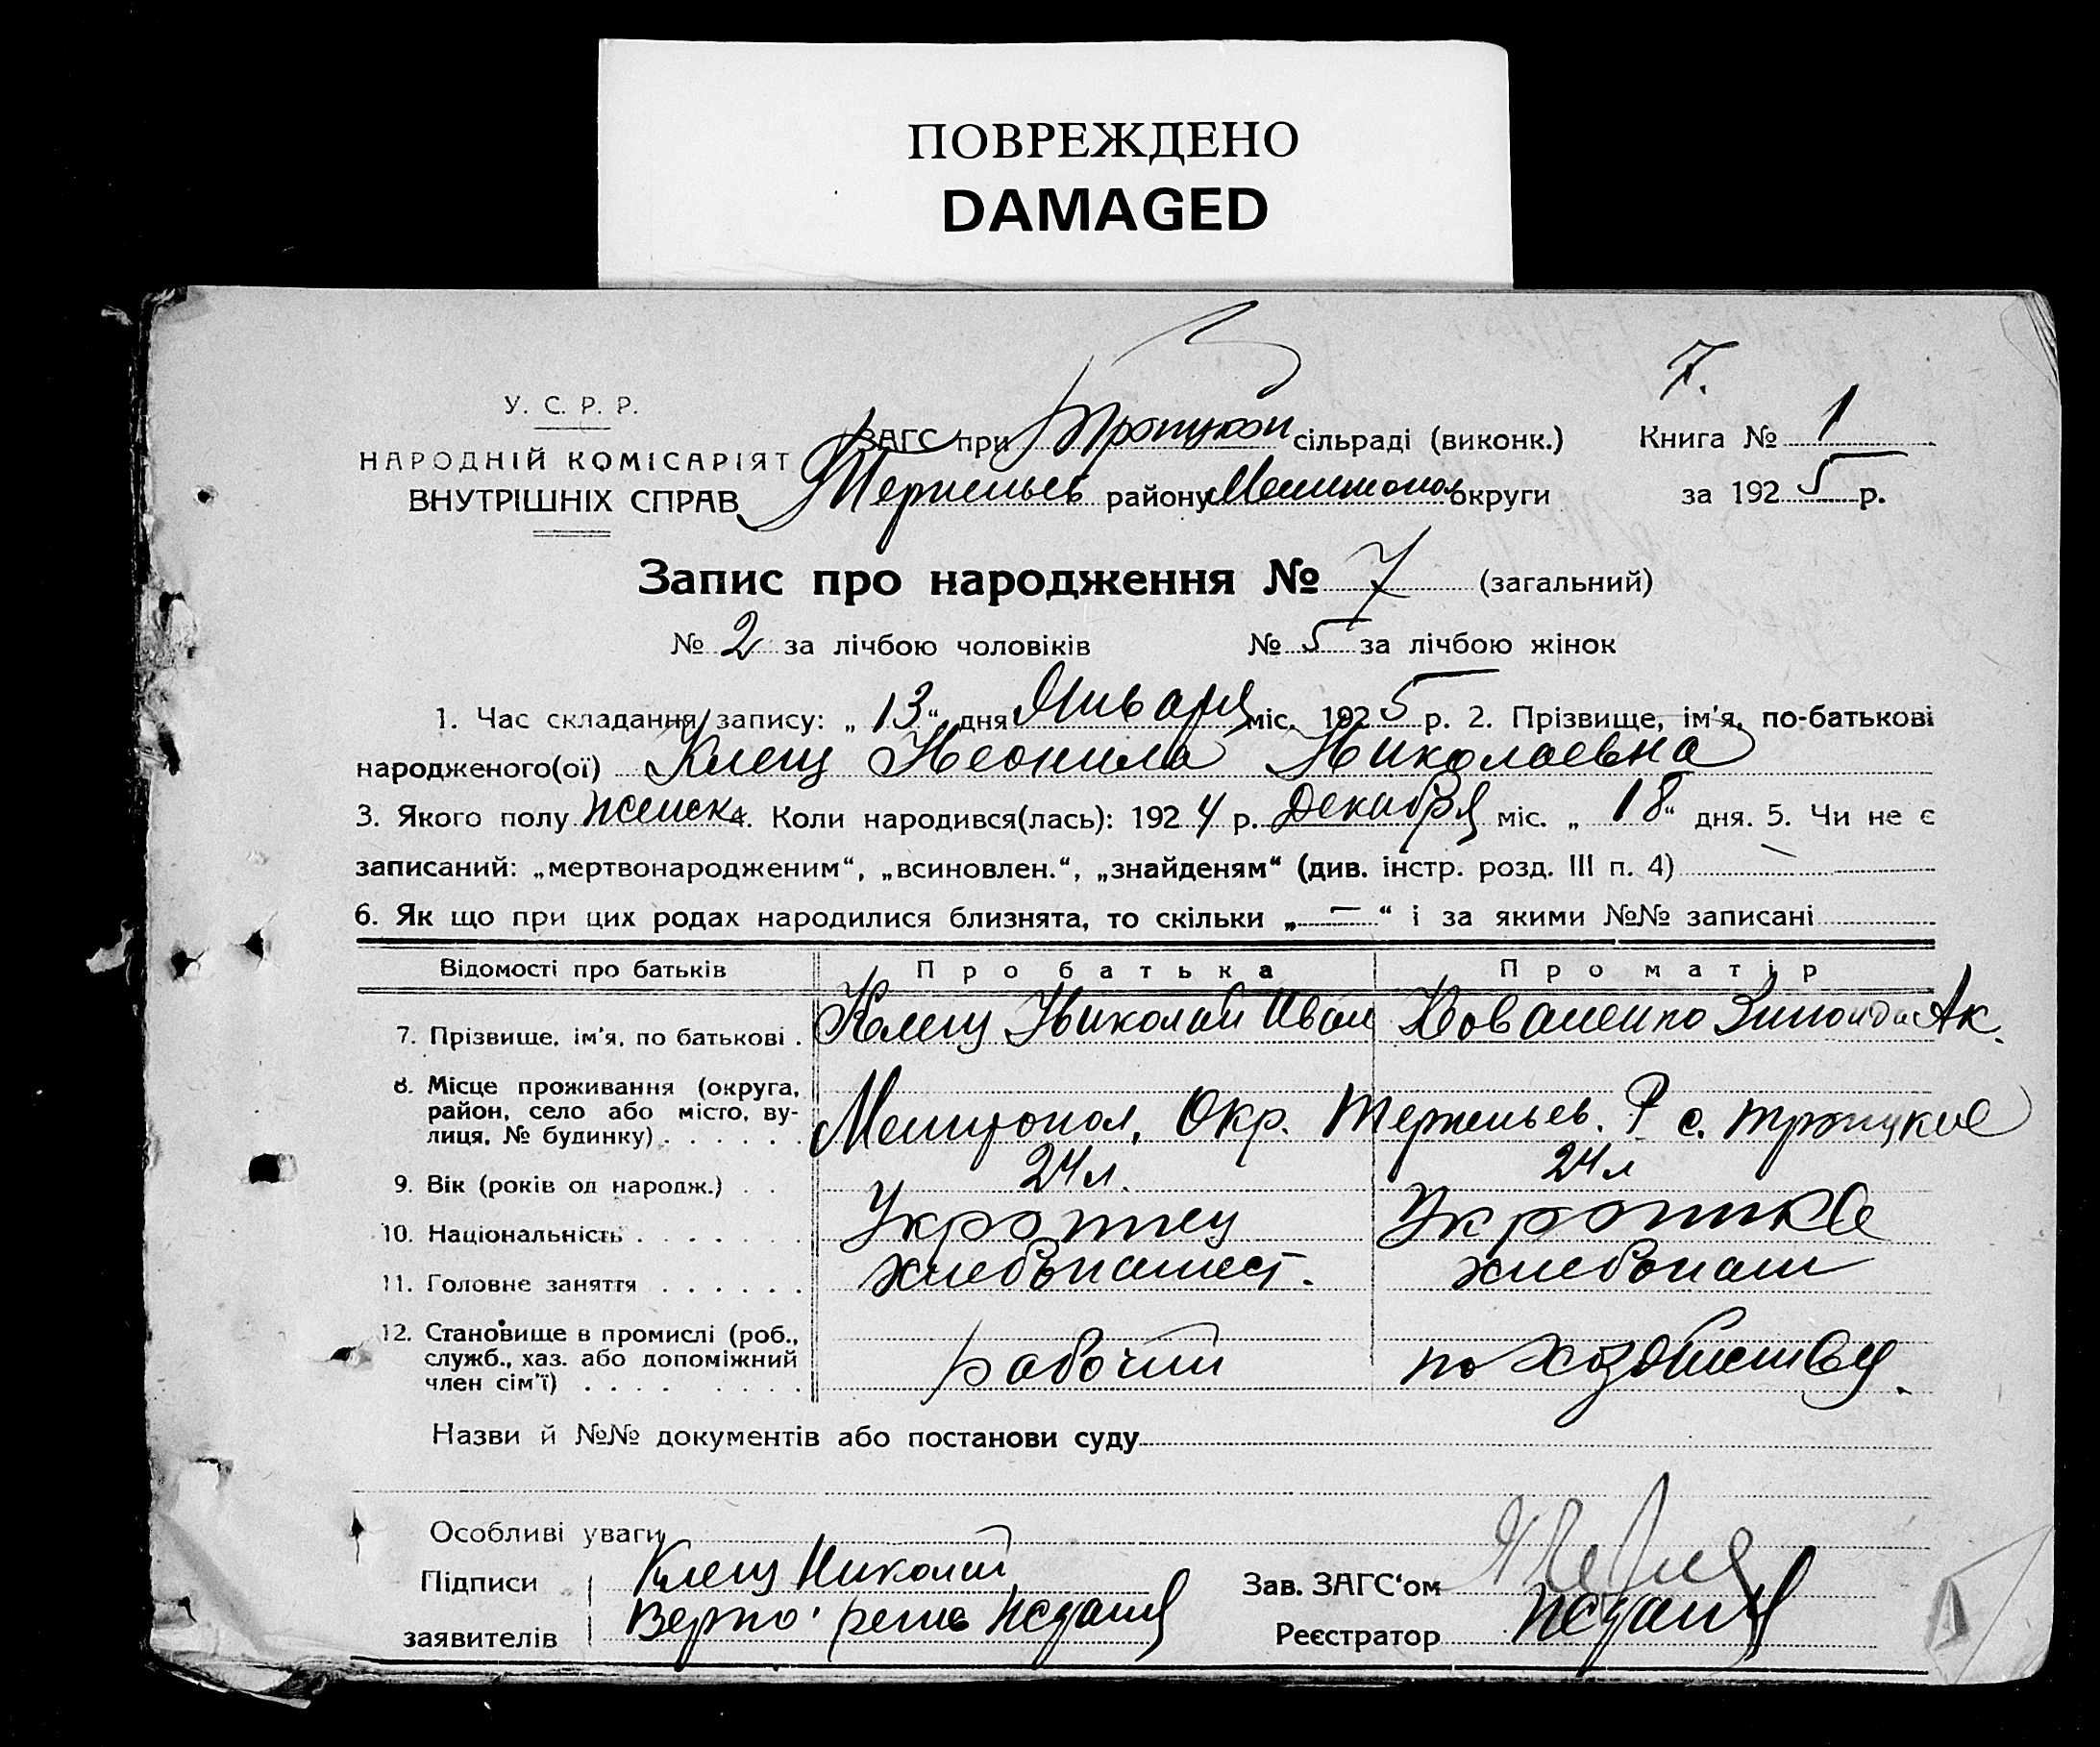 ПОВРЕЖДЕНО
DAMAGED
7.
У. С. Р. Р.
НАРОДНІЙ КОМІСАРІЯТ
ВНУТРІШНІХ СПРАВ
ЗАГС при Троицкой сільраді (виконк.) Книга № 1
району Мелитопол округи за 192 5 р.
Запис про народження № 7 (загальний)
№ 2 за лічбою чоловіків № 5 за лічбою жінок
1. Час складання запису: „ 13 “ дня Января міс. 192 5 р. 2. Прізвище, ім'я, по-батькові
народженого(ої) Клещ Неонила Николаевна
3. Якого полу женск 4. Коли народився(лась): 192 4 р. Декабря міс. „ 18 “ дня. 5. Чи не є
записаний: „мертвонародженим“, „всиновлен.“, „знайденям“ (див. інстр. розд. III п. 4) —
6. Як що при цих родах народилися близнята, то скільки „ — “ і за якими №№ записані
Відомості про батьків Про батька Про матір
7. Прізвище, ім'я, по батькові . Клещ Николай Иван Коваленко Зинаида Ак.
8. Місце проживання (округа, район, село або місто, вулиця, № будинку) . . . . . . Мелитопол. Окр. Р с. Троицкое
9. Вік (років од народж.) . . 24 л. 24 л
10. Національність . . . . . . . Украинец Украинка
11. Головне заняття . . . . . . хлебопашест. хлебопаш
12. Становище в промислі (роб., служб., хаз. або допоміжний член сім'ї) . . . . . . . . рабочий по хозяйству.
Назви й №№ документів або постанови суду
Особливі уваги
Підписи Клещ Николай Зав. ЗАГС'ом
заявителів Реєстратор